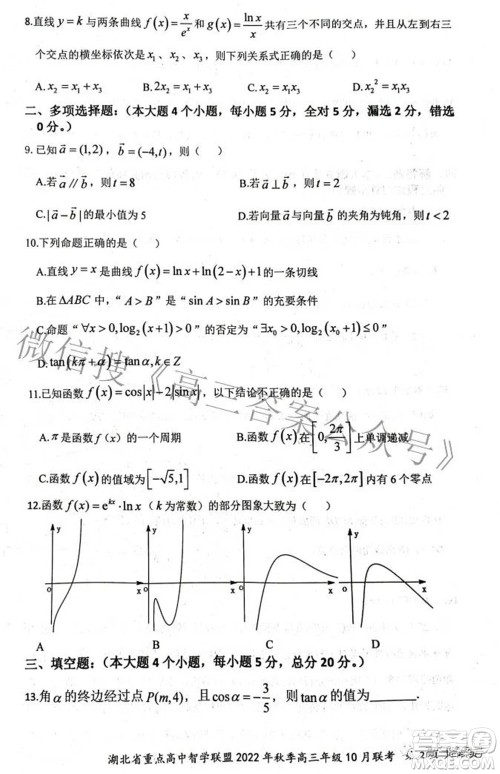 8.直线 y = k 与两条曲线 f(x) = x/e^x 和 g(x) = ln x/x 共有三个不同的交点，并且从左到右三
个交点的横坐标依次是 x₁、x₂、x₃，则下列关系式正确的是（ ）
A. x₂ = x₁ + x₃ B. 2x₂ = x₁ + x₃ C. x₂ = x₁x₃ D. x₂² = x₁x₃
二、多项选择题：（本大题4个小题，每小题5分，全对5分，漏选2分，错选
0分。）
9. 已知 a⃗ = (1,2)，b⃗ = (−4,t)，则（ ）
A.若 a⃗ ∥ b⃗，则 t = 8 B.若 a⃗ ⊥ b⃗，则 t = 2
C.|a⃗ − b⃗| 的最小值为 5 D.若向量 a⃗ 与向量 b⃗ 的夹角为钝角，则 t < 2
10.下列命题正确的是（ ）
A.直线 y = x 是曲线 f(x) = ln x + ln(2 − x) + 1 的一条切线
B.在 ΔABC 中，“ A > B ” 是 “ sin A > sin B ” 的充要条件
C.命题 “ ∀x > 0, log₂(x+1) > 0 ” 的否定为 “ ∃x₀ > 0, log₂(x₀+1) ≤ 0 ”
D. tan(kπ + α) = tan α, k ∈ Z
11.已知函数 f(x) = cos|x| − 2|sin x|，以下结论不正确的是（ ）
A. π 是函数 f (x) 的一个周期 B.函数 f(x) 在 [0, 2π/3] 上单调递减
C.函数 f(x) 的值域为 [−√5,1] D.函数 f(x) 在 [−2π,2π] 内有 6 个零点
12.函数 f(x) = e^{kx} · ln x（k 为常数）的部分图象大致为（ ）
y y y y
o x o x o x o x
A B C D
三、填空题：（本大题4个小题，每小题5分，总分20分。）
13.角 α 的终边经过点 P(m,4)，且 cos α = −3/5，则 tan α 的值为
湖北省重点高中智学联盟 2022 年秋季高三年级 10 月联考
微信搜《高三答案公众号》